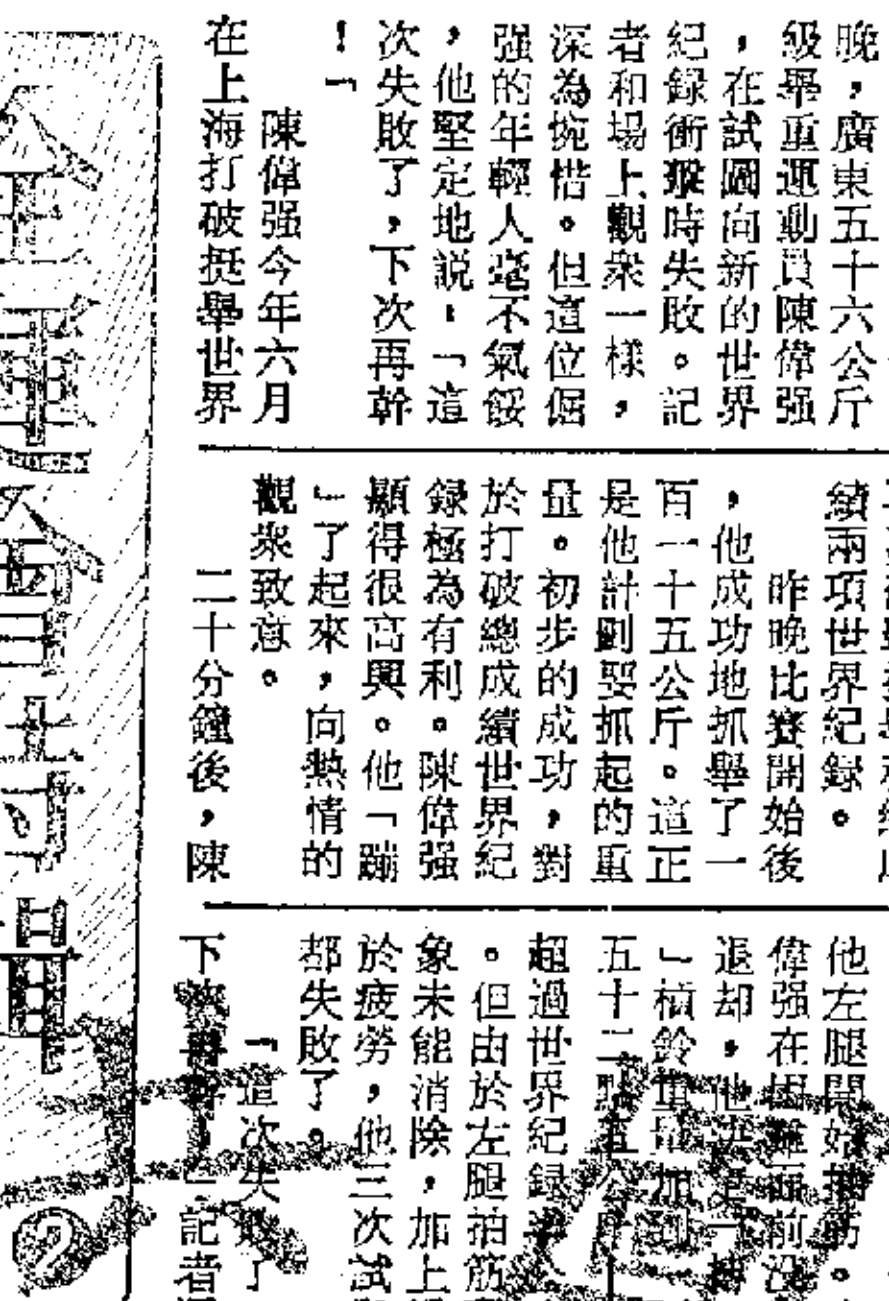 晚，廣東五十六公斤
級舉重運動員陳偉强
，在試圖向新的世界
紀録衝擊時失敗。記
者和場上觀衆一樣，
深為惋惜。但這位倔
强的年輕人毫不氣餒
，他堅定地説：「這
次失敗了，下次再幹
！」
陳偉强今年六月
在上海打破挺舉世界
績兩項世界紀録。
昨晚比賽開始後
，他成功地抓舉了一
百一十五公斤。這正
是他計劃要抓起的重
量。初步的成功，對
於打破總成績世界紀
録極為有利。陳偉强
顯得很高興。他「蹦
」了起來，向熱情的
觀衆致意。
二十分鐘後，陳
他左腿開始抽筋。
偉强在困難面前没
退却，他決
」槓鈴重量加到一
五十二點五公斤
超過世界紀録
。但由於左腿抽筋
象未能消除，加上
於疲勞，他三次試
都失敗了。
「這次失敗了
下次再幹！」記者
②